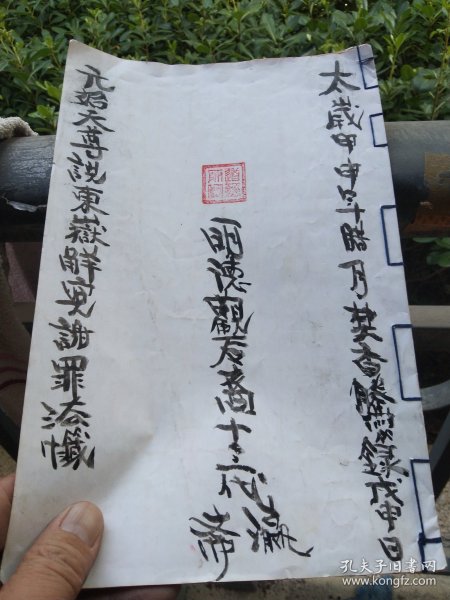 太歲甲申年腊月焚香謄錄戊申日
明德觀石 十三代
元始天尊說東嶽解冤謝罪法懺
孔夫子旧书网
www.kongfz.com